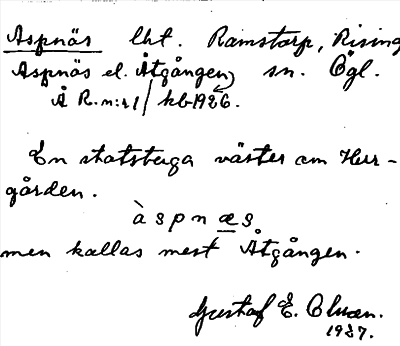 Aspnäs lht. Ramstorp, Rising
Aspnäs el. Åtgången sn. Ögl.
Å R.n:r1/kb1926.
En statstuga väster om Herr-
gården.
à s p n æ s
men kallas mest Åtgången.
Gustaf E.
1937.